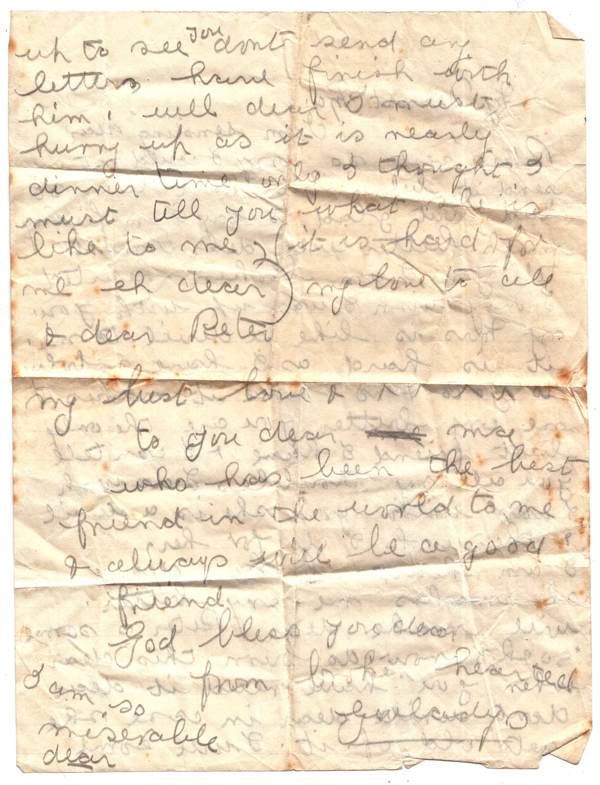 up to see you dont send any
letters have finish with
him, well dear I must
hurry up as it is nearly
dinner time only I thought I
must tell you what it is
like to me it is hard for
me eh dear my love to all
& dear Peter
my best love &
to you dear
who has been the best
friend in the world to me
& always will be a good
friend
God bless you dear
from broken hearted
Gwladys
I am so
miserable
dear